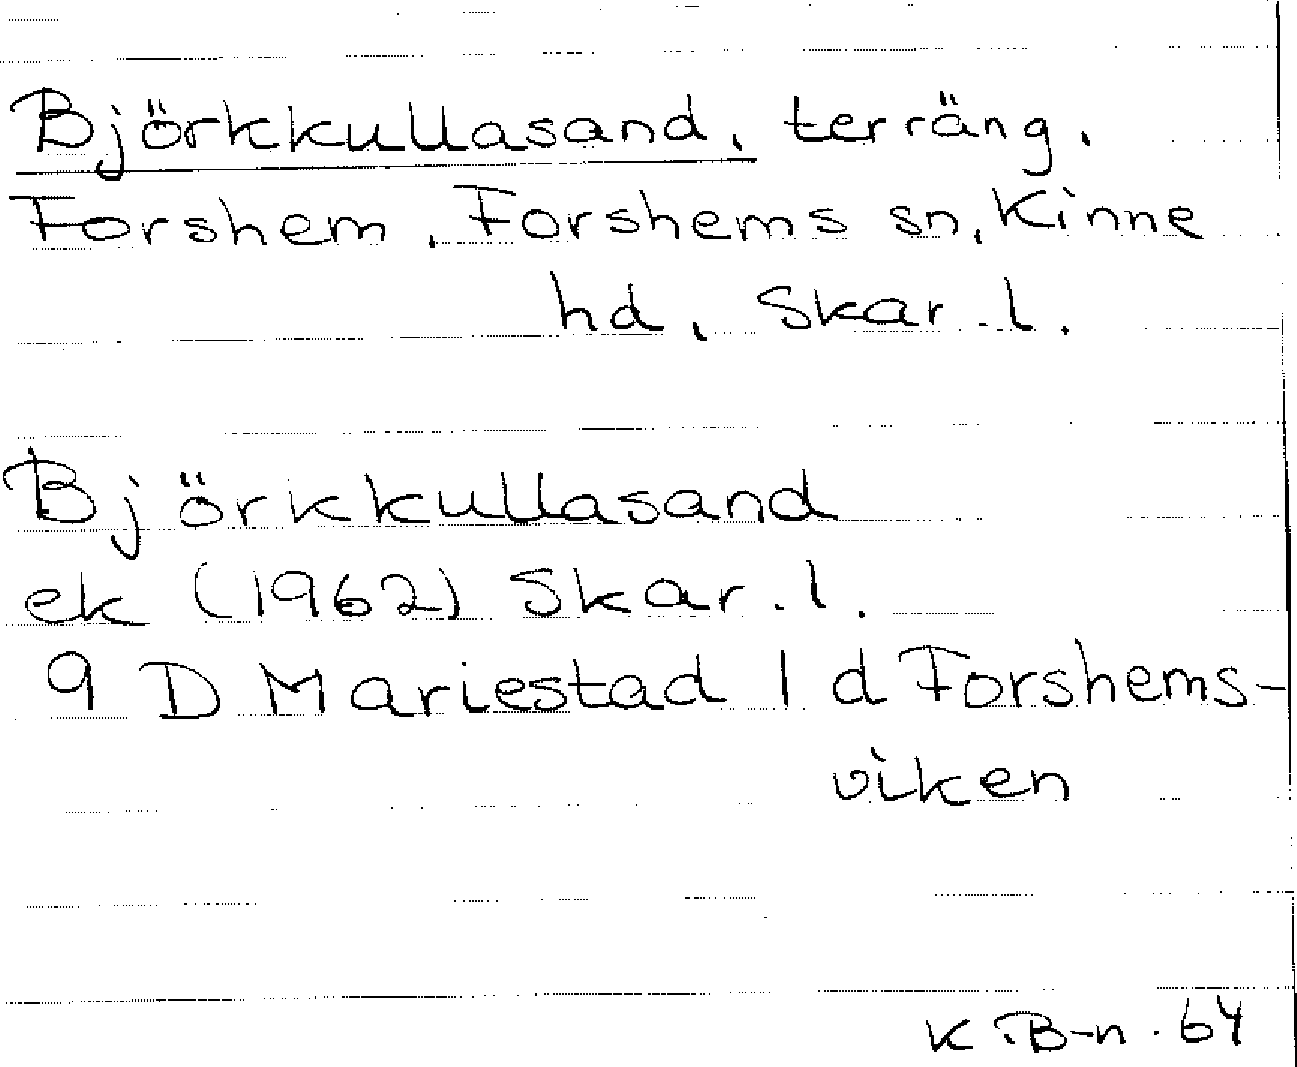 Björkkullasand, terräng.
Forshem, Forshems sn, Kinne
hd, Skar. l.
Björkkullasand
ek (1962) Skar. l.
9 D Mariestad 1 d Forshems-
viken
K. B-n. 64